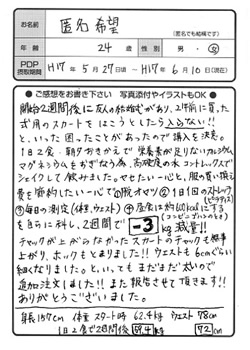 お名前
匿名希望
(匿名でも結構です)
年齢 24歳 性別 男・女
PDP摂取期間 H17年5月27日頃 ~ H17年6月10日(現在)
●ご感想をお書き下さい 写真添付やイラストもOK●
開始2週間後に友人の結婚式があり、2年前に買った
式用のスカートをはこうとしたら入らない!!
といった困ったことがあったので購入を決意。
1日2食、朝夕おきかえで栄養素が足りないカルシウム
マグネシウムをおぎなう為、高硬度の水コントレックスで
シェイクして飲みました。やせたい一心と、服の買い換え
費を節約したい一心で ①腹オマリ ②1日1回のストレッチ
(ピラティス)
③毎日の測定(体重、ウエスト) ④昼食は約600kcalにする
(コンビニプリントのとき)
を自らに科し、2週間で -3 kg減量!!
チャックが上がらなかったスカートのチャックも無事
上がり、ホックもとまりました!! ウエストも6cmぐらい
細くなりました。と、いっても、まだまだ太いので
追加注文しました!! また報告させて頂きます!!
ありがとうございました。
身長157cm 体重 スタート時 62.4kg ウエスト 78cm
1日2食で2週間後 59.4kg 72cm